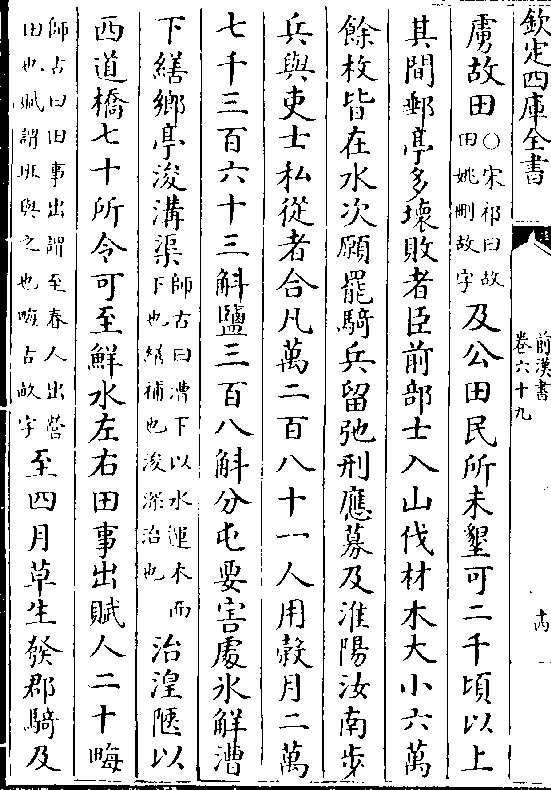 欽定四庫全書
前漢書
卷六十九
虜故田
○宋祁曰故
田姚刪故字
及公田民所未墾可二千頃以上
其間郵亭多壞敗者臣前部士入山伐材木大小六萬
餘枚皆在水次願罷騎兵留弛刑應募及淮陽汝南步
兵與吏士私從者合凡萬二百八十一人用穀月二萬
七千三百六十三斛鹽三百八斛分屯要害處氷解漕
下繕鄉亭浚溝渠
師古曰漕下以水運木而
下也繕補也浚深治也
治湟陿以
西道橋七十所令可至鮮水左右田事出賦人二十畮
師古曰田事出謂至春人出營
田也賦謂班與之也畮古畝字
至四月草生發郡騎及